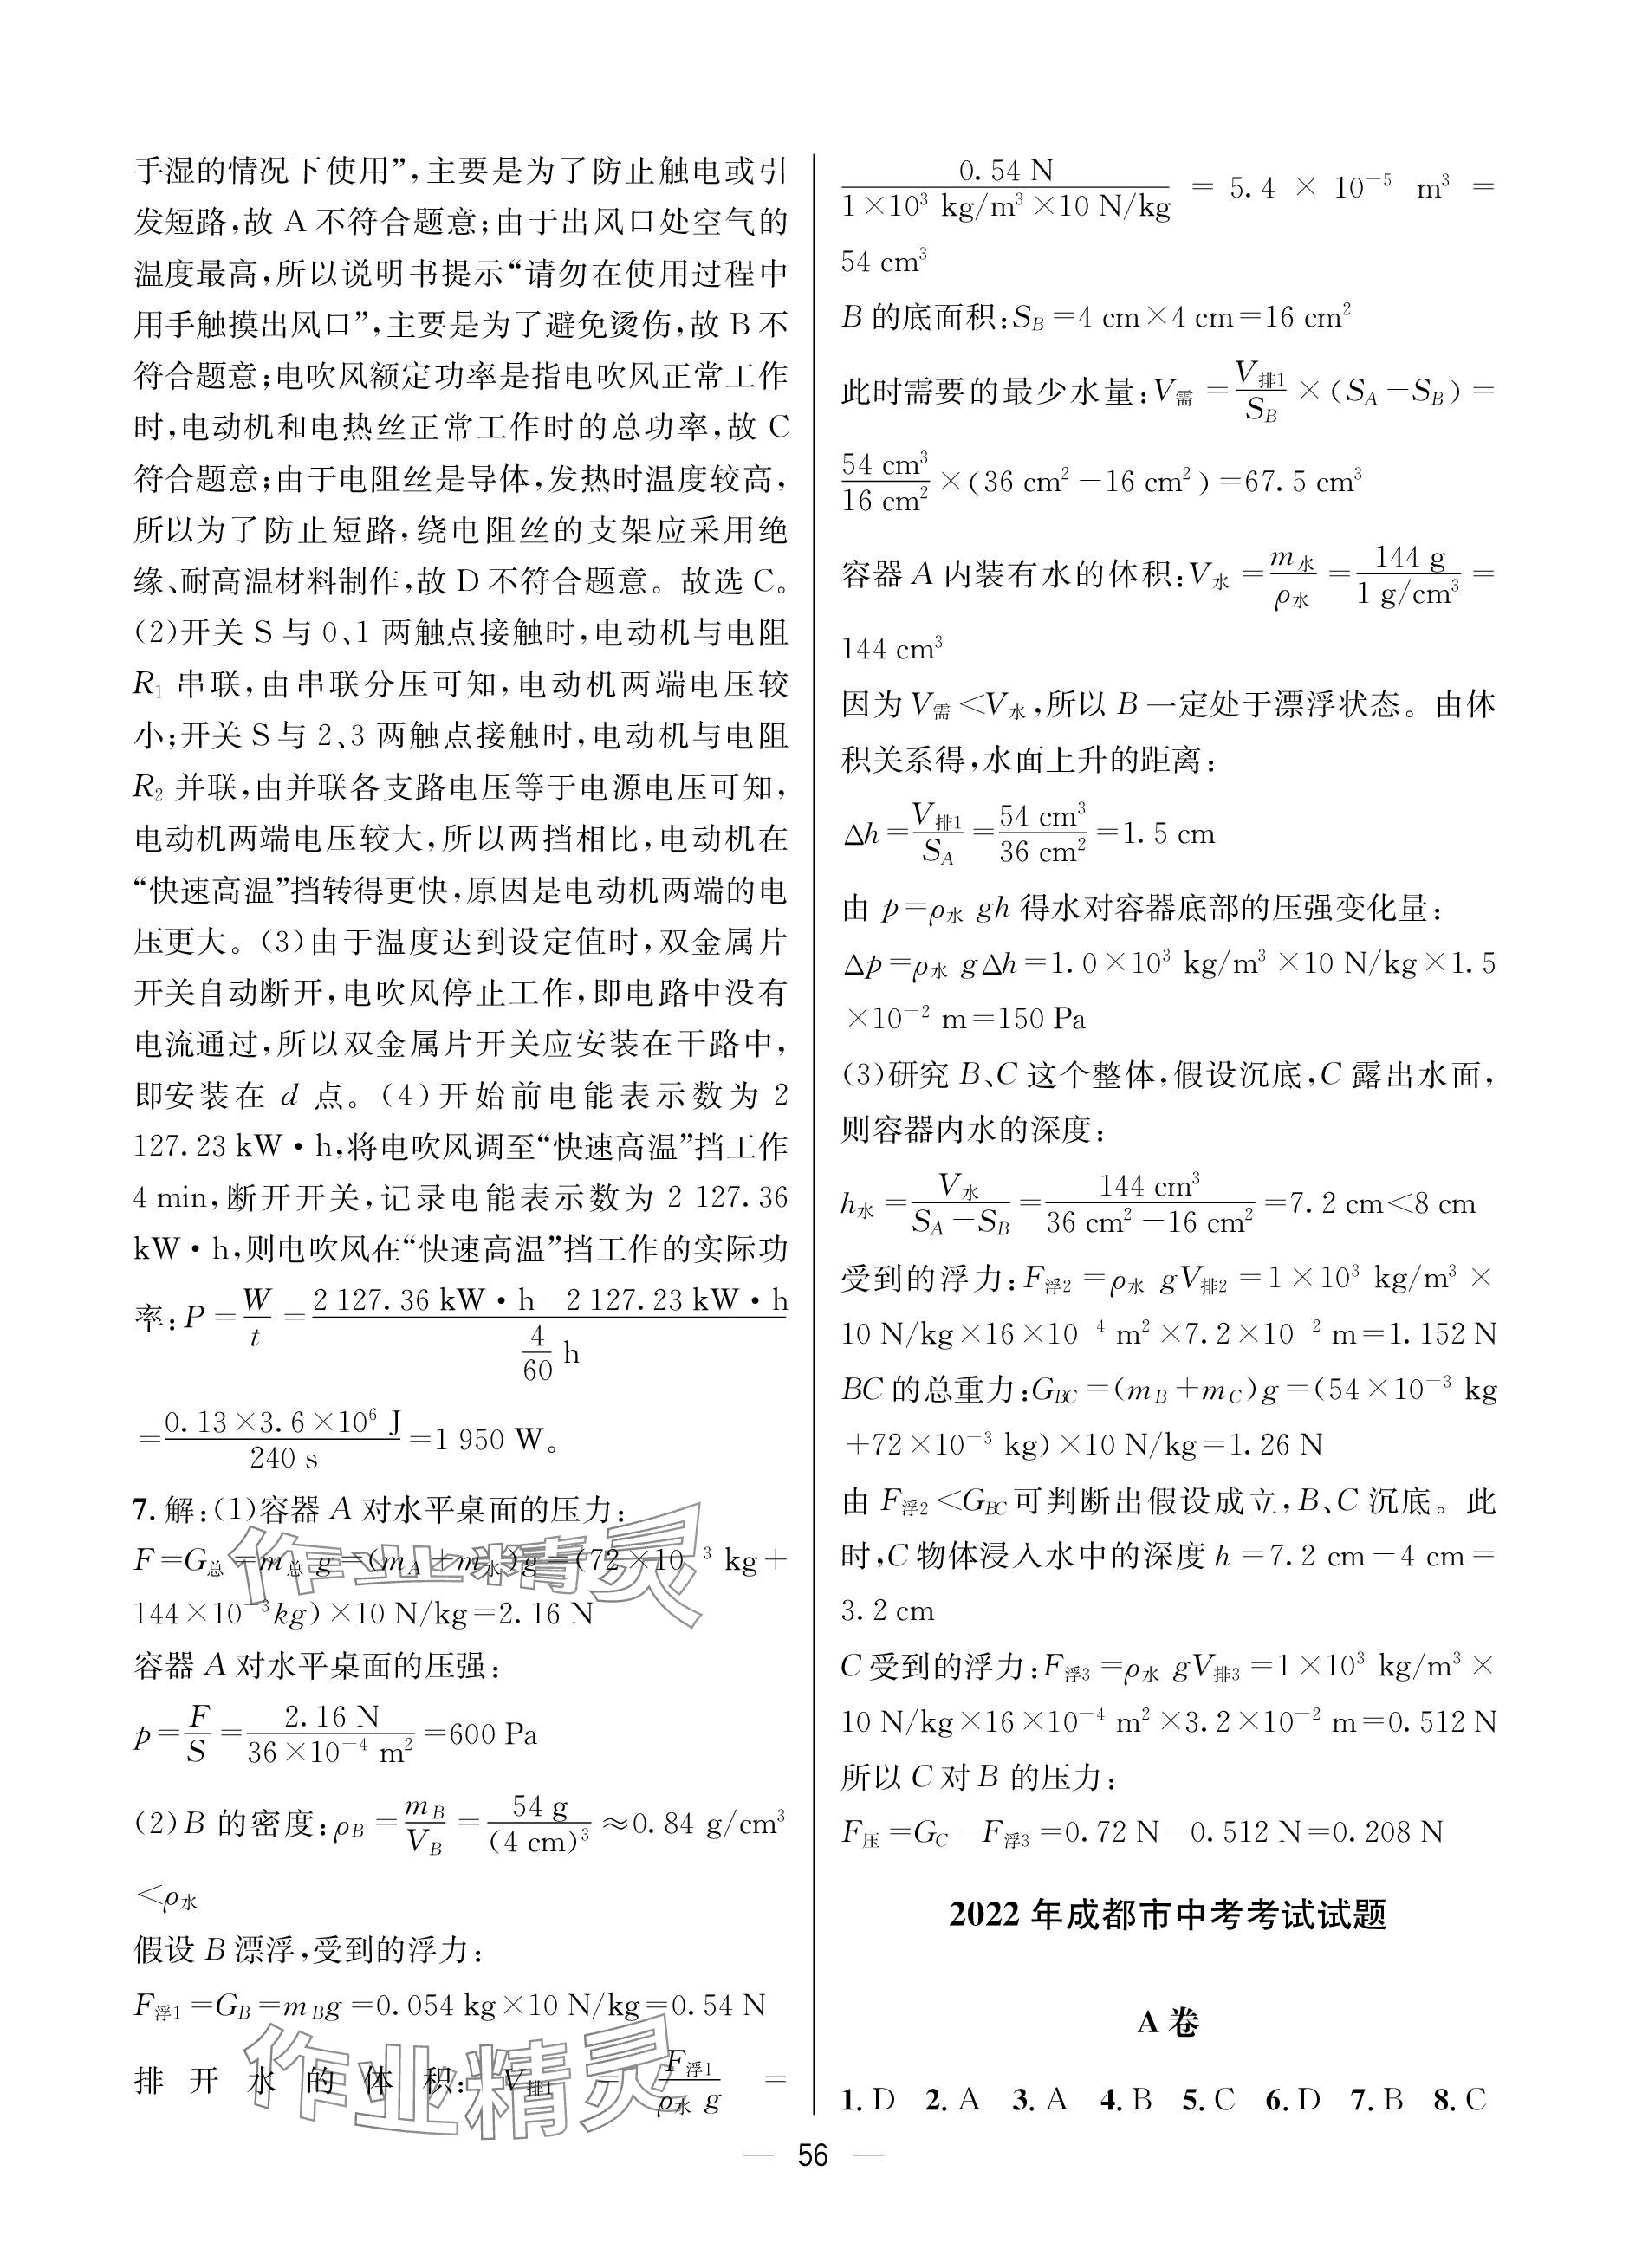 手湿的情况下使用”,主要是为了防止触电或引
发短路,故 A 不符合题意;由于出风口处空气的
温度最高,所以说明书提示“请勿在使用过程中
用手触摸出风口”,主要是为了避免烫伤,故 B 不
符合题意;电吹风额定功率是指电吹风正常工作
时,电动机和电热丝正常工作时的总功率,故 C
符合题意;由于电阻丝是导体,发热时温度较高,
所以为了防止短路,绕电阻丝的支架应采用绝
缘、耐高温材料制作,故 D 不符合题意。故选 C。
(2)开关 S 与 0、1 两触点接触时,电动机与电阻
R₁ 串联,由串联分压可知,电动机两端电压较
小;开关 S 与 2、3 两触点接触时,电动机与电阻
R₂ 并联,由并联各支路电压等于电源电压可知,
电动机两端电压较大,所以两挡相比,电动机在
“快速高温”挡转得更快,原因是电动机两端的电
压更大。(3)由于温度达到设定值时,双金属片
开关自动断开,电吹风停止工作,即电路中没有
电流通过,所以双金属片开关应安装在干路中,
即安装在 d 点。(4)开始前电能表示数为 2
127.23 kW·h,将电吹风调至“快速高温”挡工作
4 min,断开开关,记录电能表示数为 2 127.36
kW·h,则电吹风在“快速高温”挡工作的实际功
率:P=W/t=(2 127.36 kW·h-2 127.23 kW·h)/(4/60 h)
=(0.13×3.6×10⁶ J)/(240 s)=1 950 W。
7.解:(1)容器 A 对水平桌面的压力:
F=G总=m总 g=(mA+m水)g=(72×10⁻³ kg+
144×10⁻³kg)×10 N/kg=2.16 N
容器 A 对水平桌面的压强:
p=F/S=2.16 N/(36×10⁻⁴ m²)=600 Pa
(2)B 的密度:ρB=mB/VB=54 g/(4 cm)³≈0.84 g/cm³
<ρ水
假设 B 漂浮,受到的浮力:
F浮1=GB=mBg=0.054 kg×10 N/kg=0.54 N
排开水的体积:V排1=F浮1/(ρ水 g)=
0.54 N/(1×10³ kg/m³×10 N/kg)=5.4×10⁻⁵ m³=
54 cm³
B 的底面积:SB=4 cm×4 cm=16 cm²
此时需要的最少水量:V需=V排1/SB×(SA-SB)=
54 cm³/16 cm²×(36 cm²-16 cm²)=67.5 cm³
容器 A 内装有水的体积:V水=m水/ρ水=144 g/(1 g/cm³)=
144 cm³
因为 V需<V水,所以 B 一定处于漂浮状态。由体
积关系得,水面上升的距离:
Δh=V排1/SA=54 cm³/36 cm²=1.5 cm
由 p=ρ水 gh 得水对容器底部的压强变化量:
Δp=ρ水 gΔh=1.0×10³ kg/m³×10 N/kg×1.5
×10⁻² m=150 Pa
(3)研究 B、C 这个整体,假设沉底,C 露出水面,
则容器内水的深度:
h水=V水/(SA-SB)=144 cm³/(36 cm²-16 cm²)=7.2 cm<8 cm
受到的浮力:F浮2=ρ水 gV排2=1×10³ kg/m³×
10 N/kg×16×10⁻⁴ m²×7.2×10⁻² m=1.152 N
BC 的总重力:GBC=(mB+mC)g=(54×10⁻³ kg
+72×10⁻³ kg)×10 N/kg=1.26 N
由 F浮2<GBC可判断出假设成立,B、C 沉底。此
时,C 物体浸入水中的深度 h=7.2 cm-4 cm=
3.2 cm
C 受到的浮力:F浮3=ρ水 gV排3=1×10³ kg/m³×
10 N/kg×16×10⁻⁴ m²×3.2×10⁻² m=0.512 N
所以 C 对 B 的压力:
F压=GC-F浮3=0.72 N-0.512 N=0.208 N
2022 年成都市中考考试试题
A 卷
1. D 2. A 3. A 4. B 5. C 6. D 7. B 8. C
— 56 —
作业精灵
作业精灵